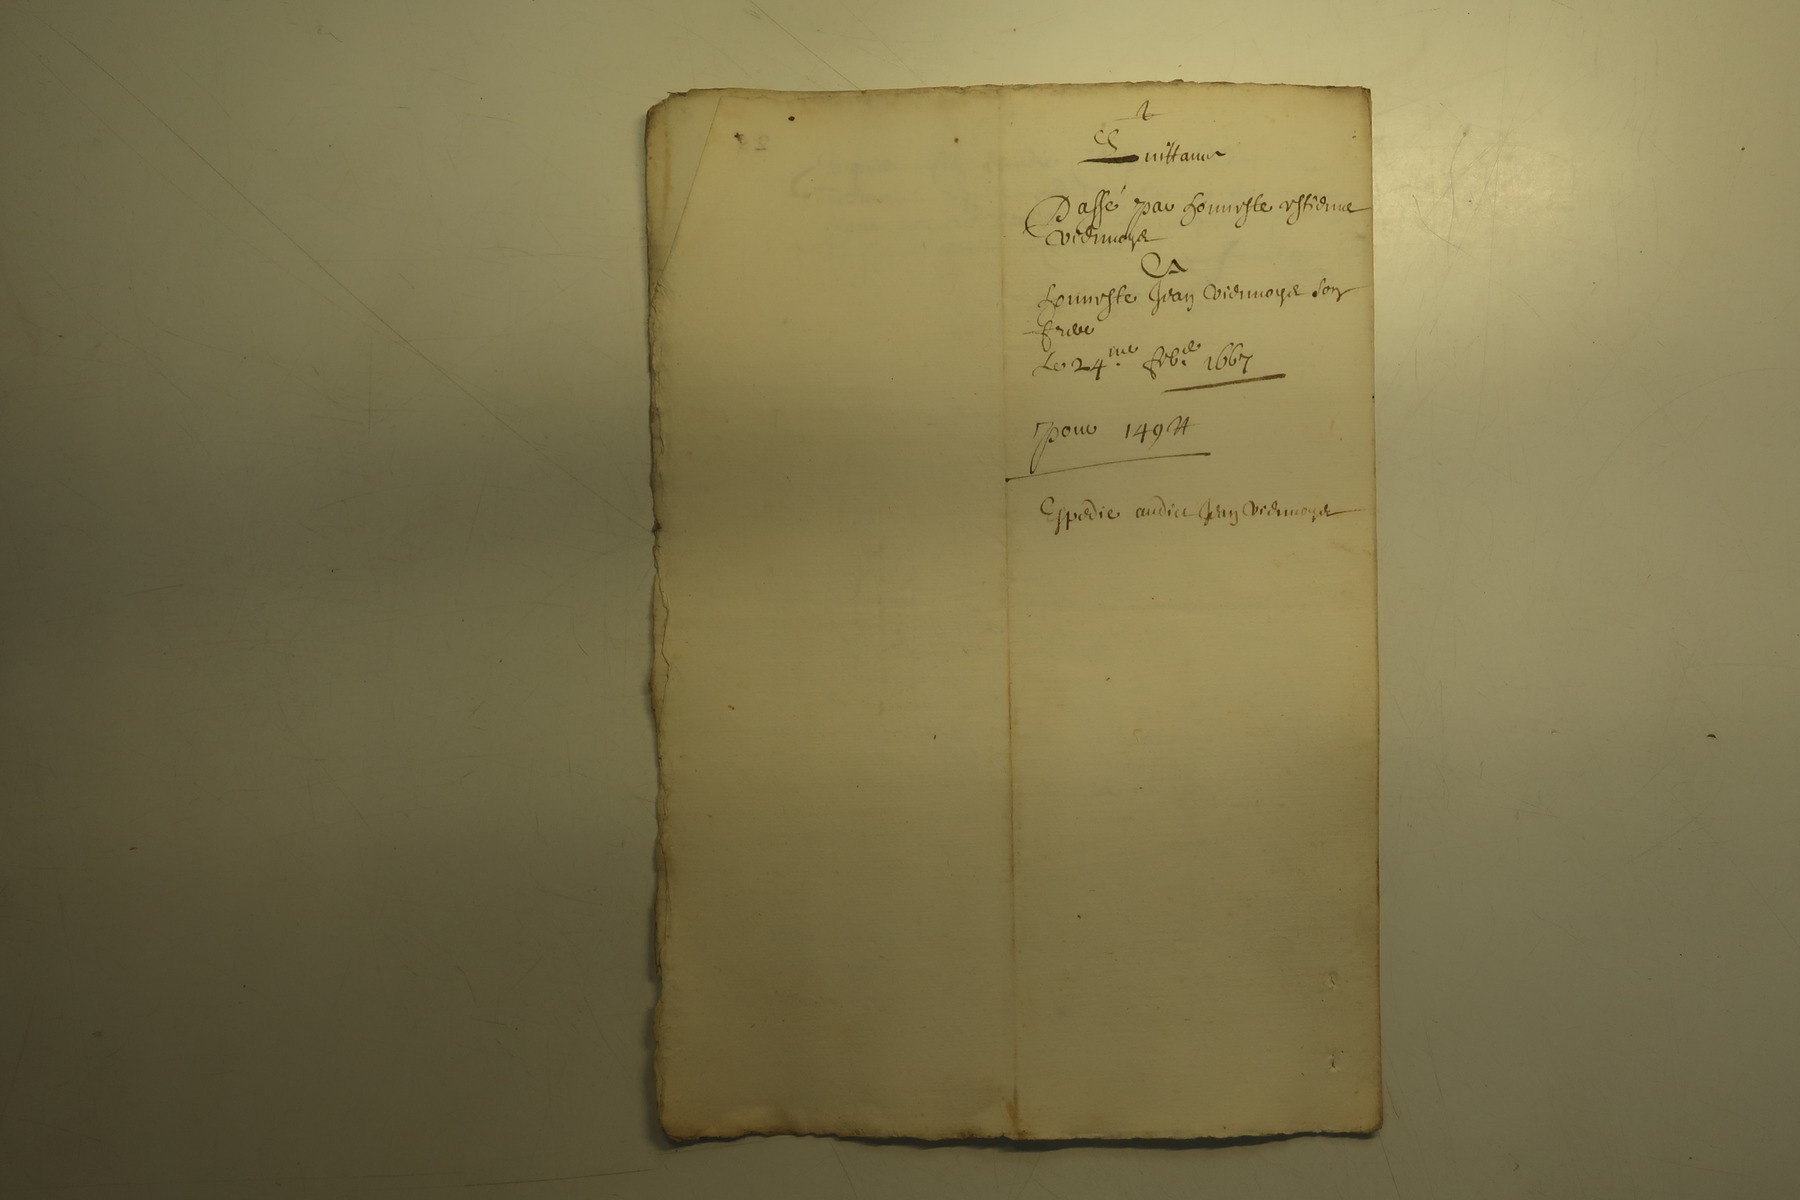 Quittance
Passé par honneste estienne
viennoys
A
honneste Jean viennoys son
frere
Le 24me febr 1667
Pour 149 ₶
Expedie audict Jean viennoys